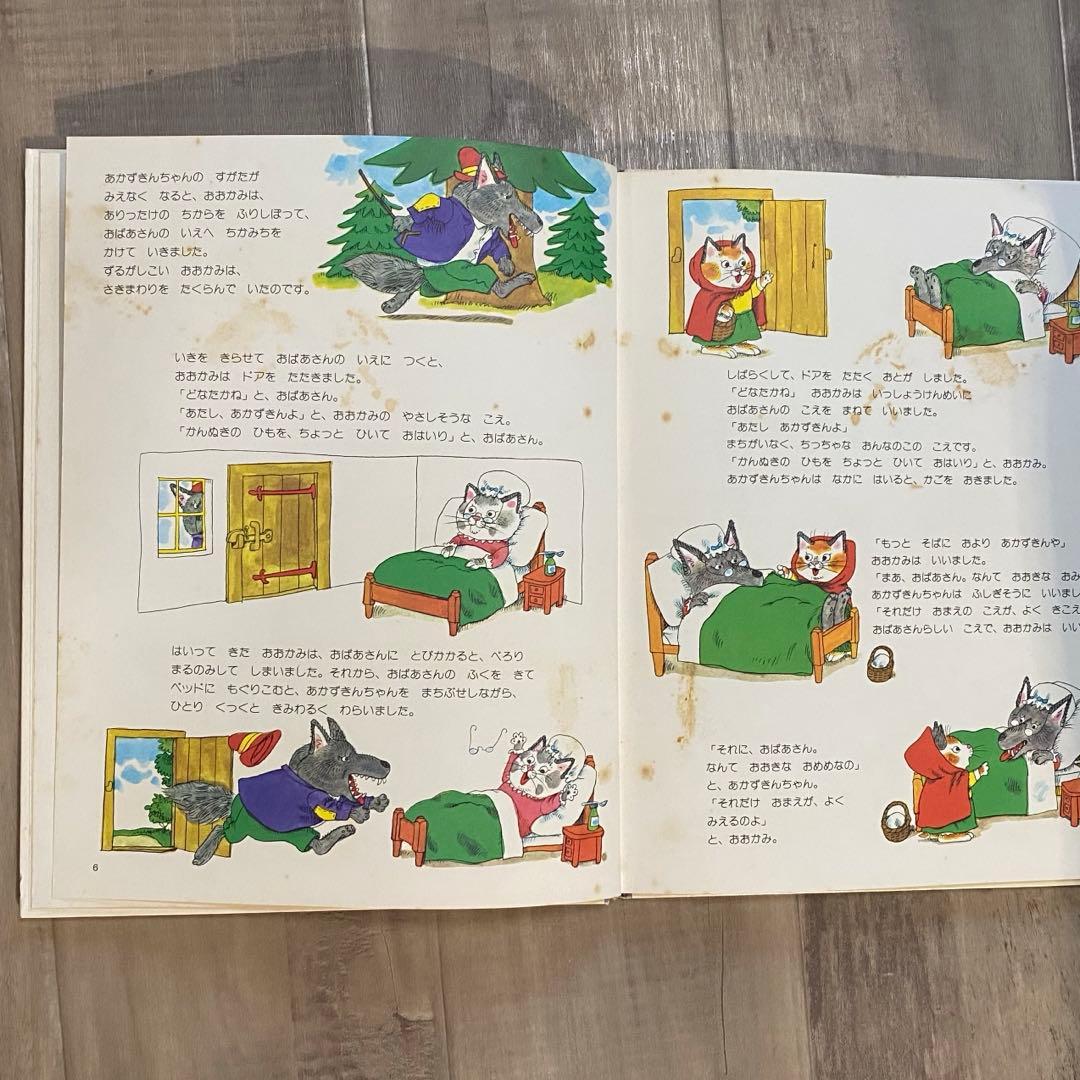 あかずきんちゃんの　すがたが
みえなく　なると、おおかみは、
ありったけの　ちからを　ふりしぼって、
おばあさんの　いえへ　ちかみちを
かけて　いきました。
ずるがしこい　おおかみは、
さきまわりを　たくらんで　いたのです。
いきを　きらせて　おばあさんの　いえに　つくと、
おおかみは　ドアを　たたきました。
「どなたかね」と、おばあさん。
「あたし、あかずきんよ」と、おおかみの　やさしそうな　こえ。
「かんぬきの　ひもを、ちょっと　ひいて　おはいり」と、おばあさん。
はいって　きた　おおかみは、おばあさんに　とびかかると、ぺろり
まるのみして　しまいました。それから、おばあさんの　ふくを　きて
ベッドに　もぐりこむと、あかずきんちゃんを　まちぶせしながら、
ひとり　くっくと　きみわるく　わらいました。
6
しばらくして、ドアを　たたく　おとが　しました。
「どなたかね」　おおかみは　いっしょうけんめいに
おばあさんの　こえを　まねて　いいました。
「あたし　あかずきんよ」
まちがいなく、ちっちゃな　おんなのこの　こえです。
「かんぬきの　ひもを　ちょっと　ひいて　おはいり」と、おおかみ。
あかずきんちゃんは　なかに　はいると、かごを　おきました。
「もっと　そばに　おより　あかずきんや」
おおかみは　いいました。
「まあ、おばあさん。なんて　おおきな　おみ
あかずきんちゃんは　ふしぎそうに　いいまし
「それだけ　おまえの　こえが、よく　きこえ
おばあさんらしい　こえで、おおかみは　いい
「それに、おばあさん。
なんて　おおきな　おめめなの」
と、あかずきんちゃん。
「それだけ　おまえが、よく
みえるのよ」
と、おおかみ。